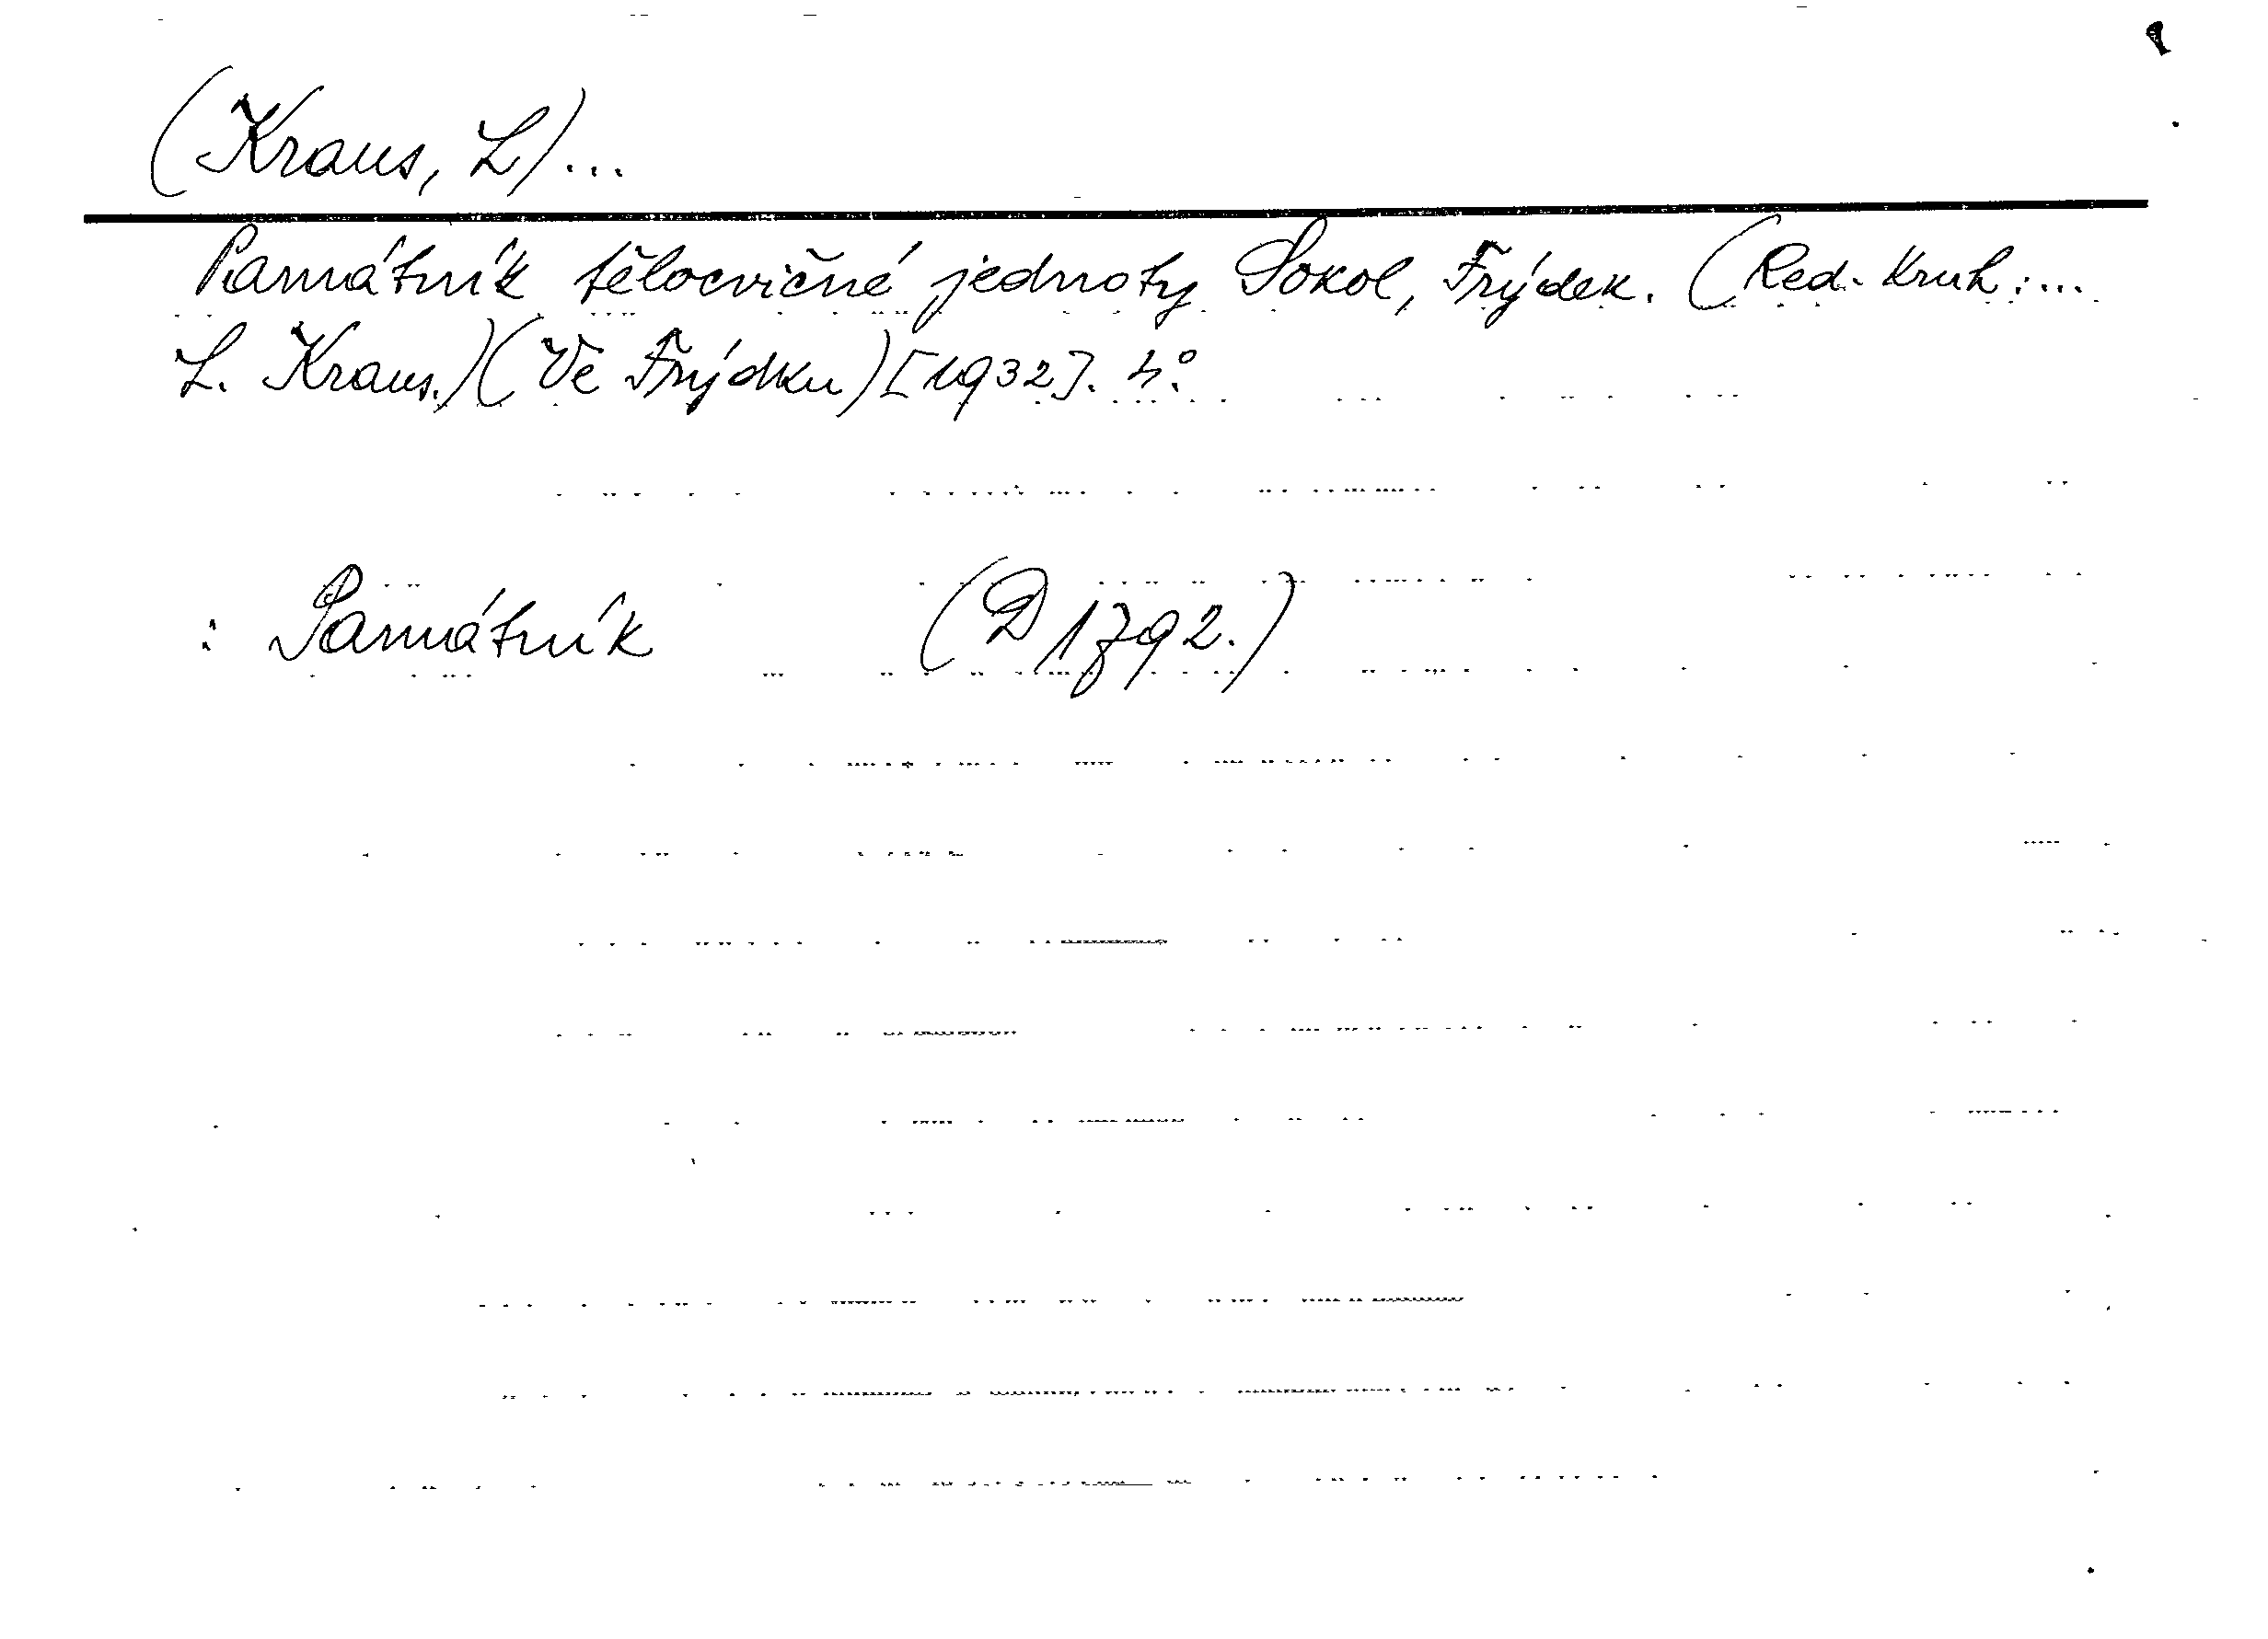 (Kraus, L)...
Památník tělocvičné jednoty Sokol, Frýdek. (Red. Kruh:...
L. Kraus.)(Ve Frýdku)[1932]. 4°.
: Památník (D 1792.)